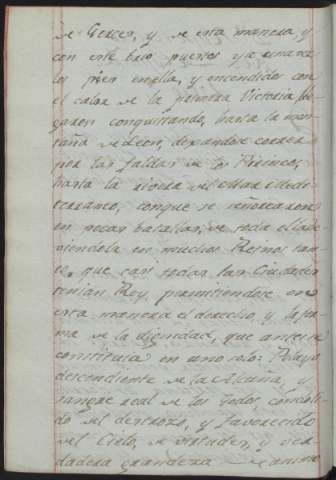 de Xerez, y de esta manera, y
con este baxo puestos ya una vez
los pies en ella, y encendidos con
el calor de la primera Victoria lle
garon conquistando, hasta la mon
taña de Leon, dexandose correr
por las faldas de los Pirineos,
hasta la rivera del Mar Medi
terraneo, conque se señorearon
en pocas batallas, de toda ella de
viendola en muchos Reinos tan
to, que casi todas las Ciudades
tenian Rey, permitiendose en
esta manera el derecho, y la for
ma de la dignidad, que antes se
constituia en uno solo: Pelayo
descendiente de la Alcuña, y
sangre real de los Godos, condoli
do del destrozo, y favorecido
del Cielo, de verdader, y ver
dadera grandeza de animo